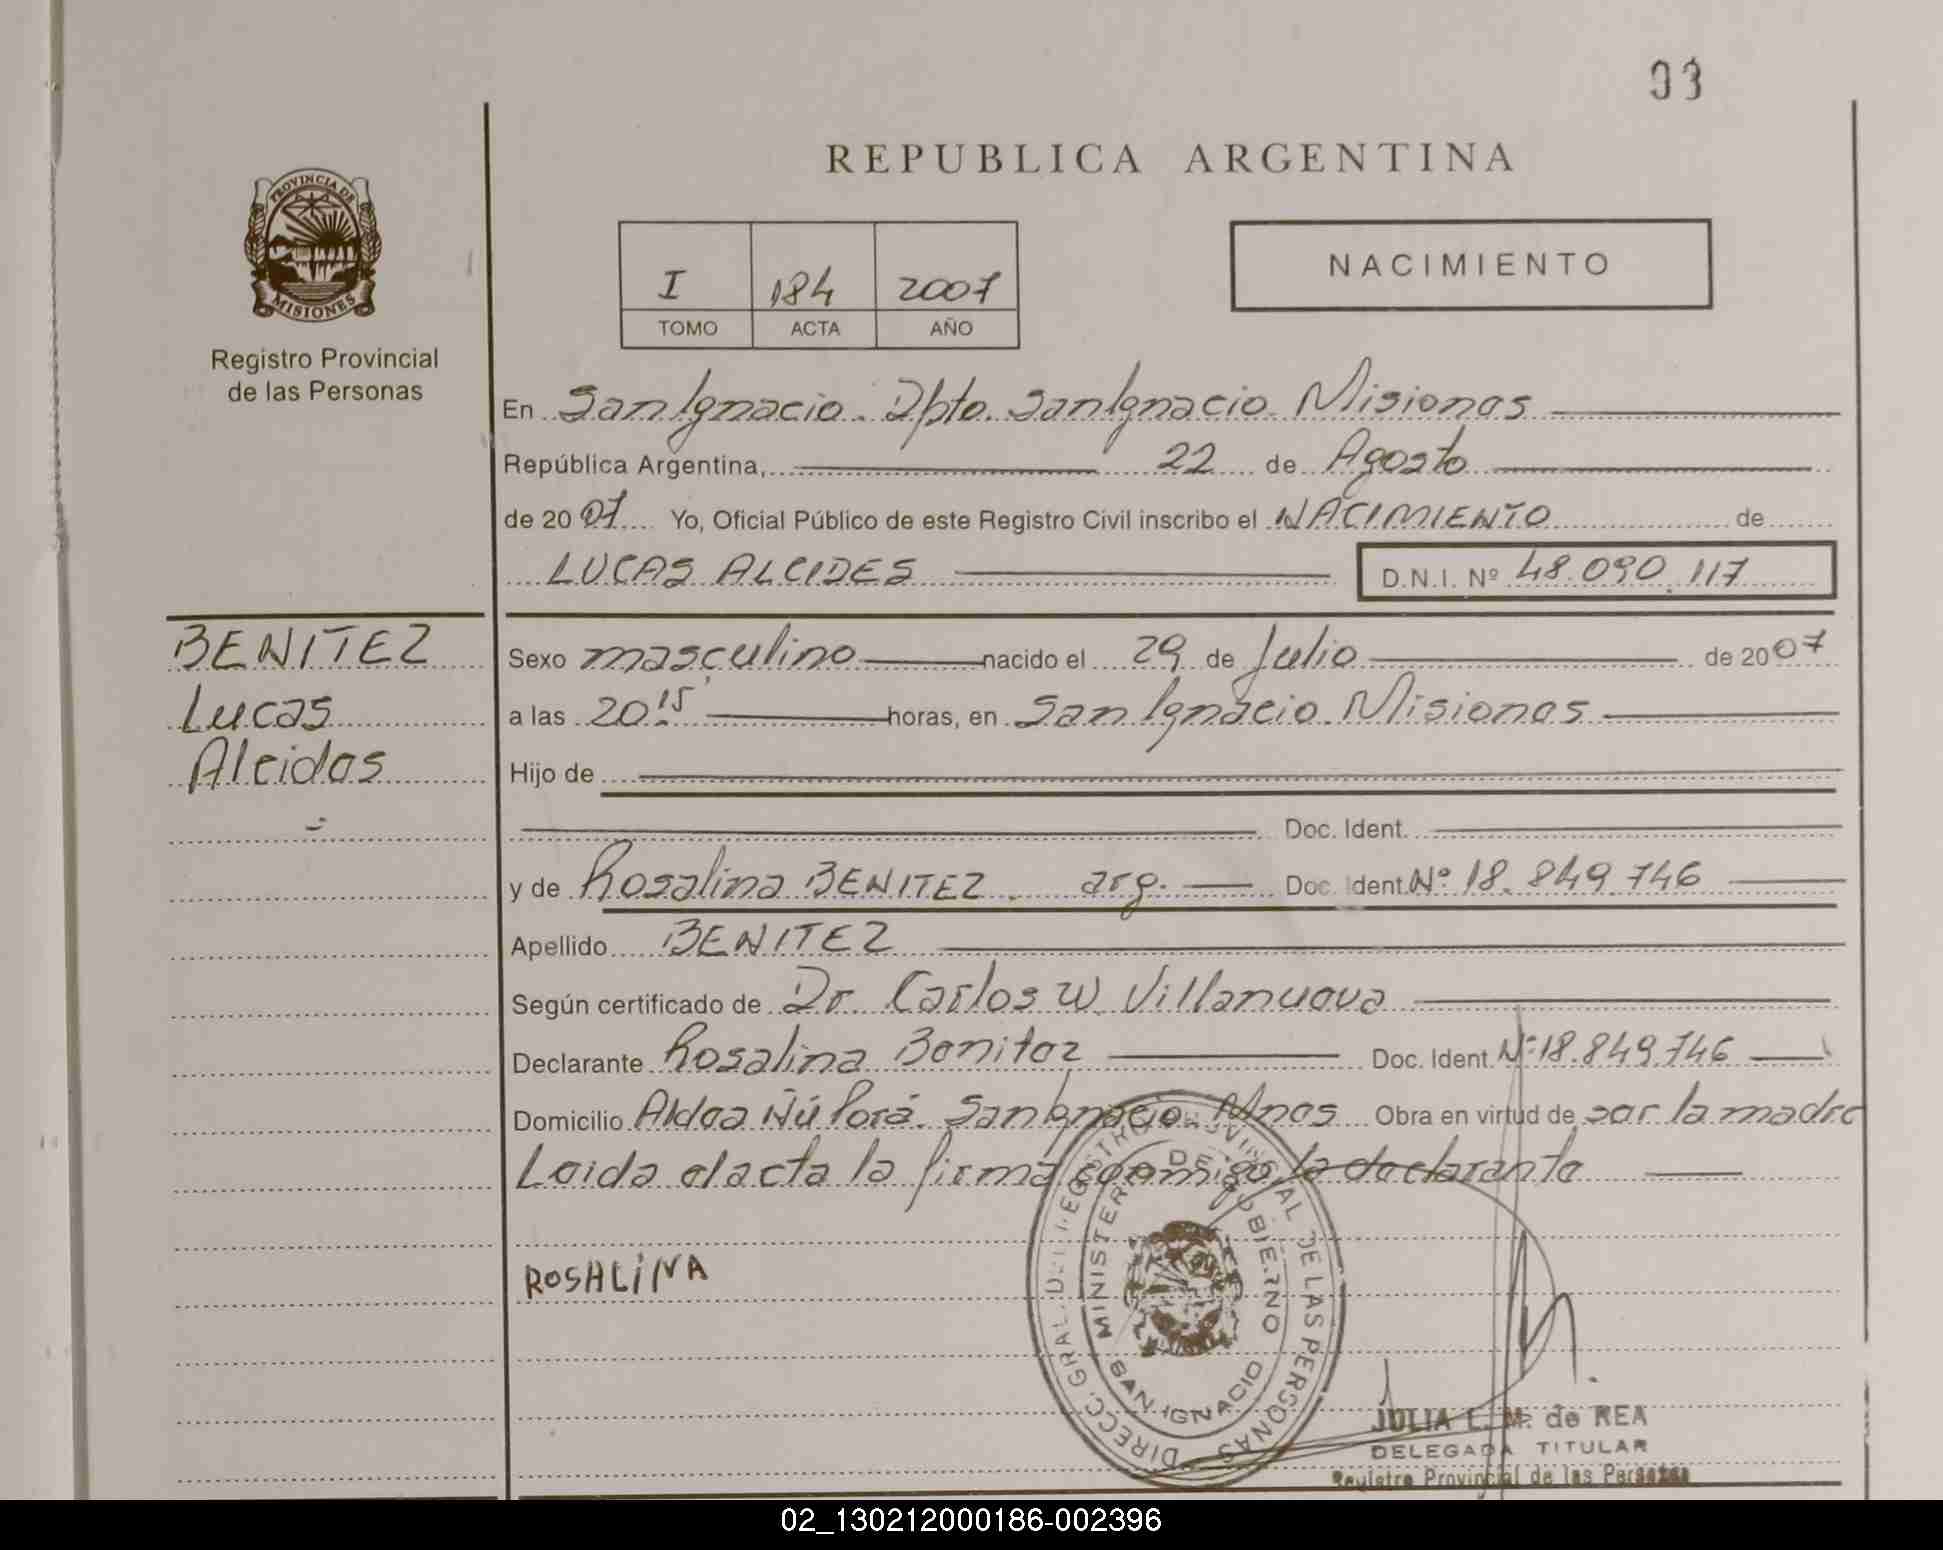 03
REPUBLICA ARGENTINA
PROVINCIA DE
MISIONES
Registro Provincial
de las Personas
I 184 2007
TOMO ACTA AÑO
NACIMIENTO
En San Ignacio. Dpto. San Ignacio. Misiones
República Argentina, 22 de Agosto
de 2007 Yo, Oficial Público de este Registro Civil inscribo el NACIMIENTO de
LUCAS ALCIDES D.N.I. Nº 48.090.117
BENITEZ
Lucas
Alcides
Sexo masculino nacido el 29 de Julio de 2007
a las 20 15 horas, en San Ignacio. Misiones
Hijo de
Doc. Ident.
y de Rosalina BENITEZ. arg. Doc. Ident. Nº 18.849.746
Apellido BENITEZ
Según certificado de Dr. Carlos W. Villanueva
Declarante Rosalina Benitez Doc. Ident. Nº 18.849.746
Domicilio Aldea Ñú Porá. San Ignacio. Mnes Obra en virtud de ser la madre
Leida el acta la firma conmigo la declarante
ROSALiNA
DIRECC. GRAL. DEL REGISTRO PROVINCIAL DE LAS PERSONAS
MINISTERIO DE GOBIERNO
SAN IGNACIO
JULIA L. M. de REA
DELEGADA TITULAR
Registro Provincial de las Personas
02_130212000186-002396